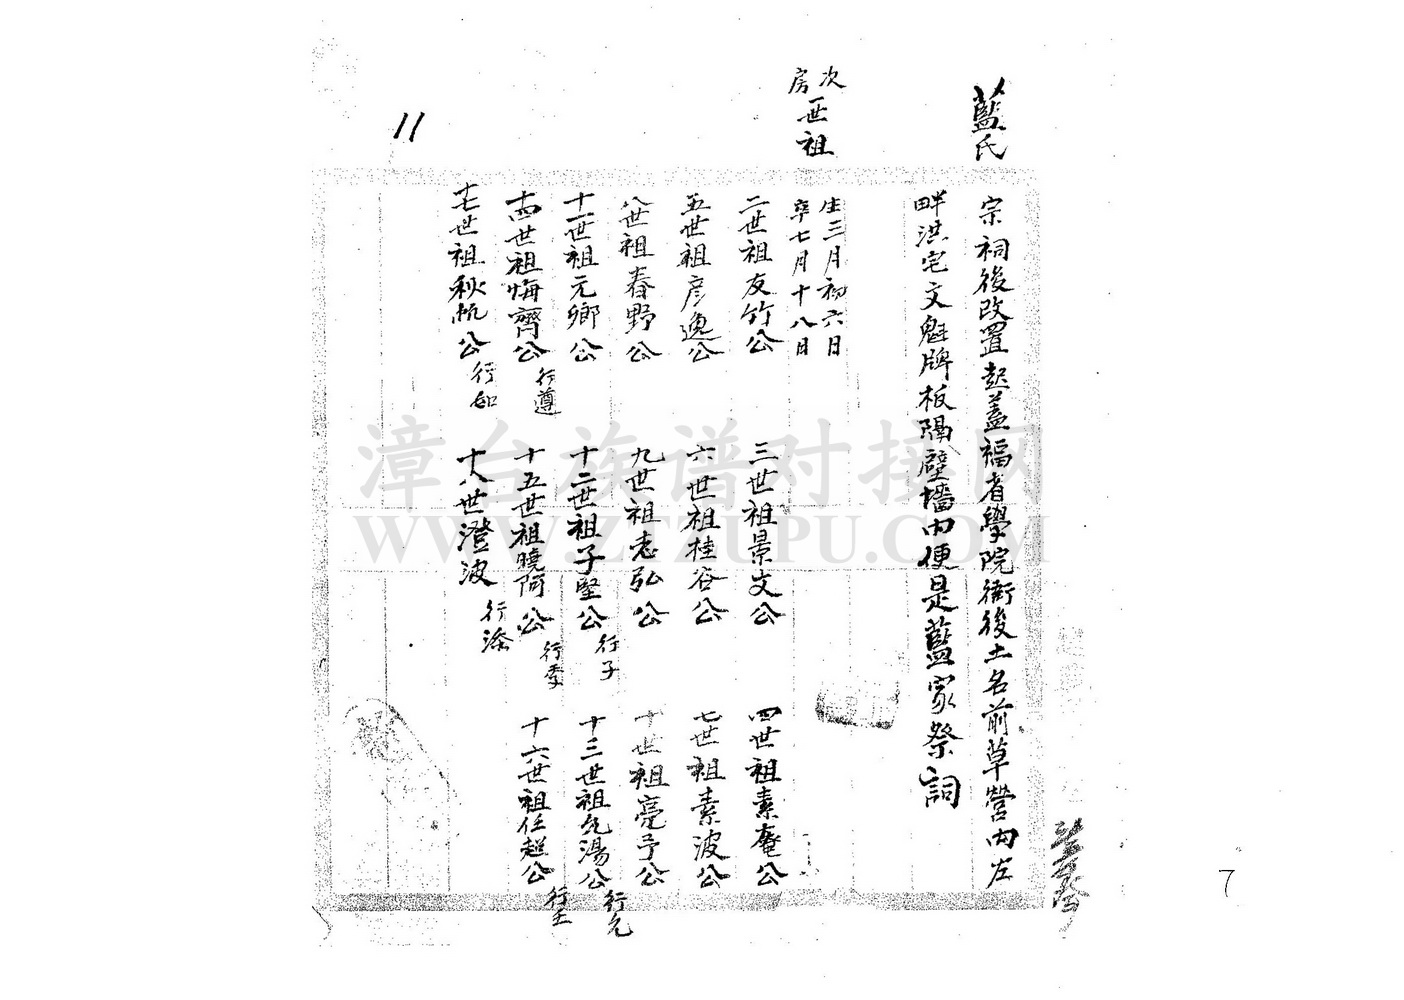 藍氏
宗祠後改置起蓋福省學院衙後土名前草營內左
畔洪宅文魁牌板隔壁墻內便是藍家祭詞
次房
一世祖
生三月初六日
卒七月十八日
二世祖友竹公
三世祖景文公
四世祖素庵公
五世祖彥逸公
六世祖桂谷公
七世祖素波公
八世祖春野公
九世祖志弘公
十世祖亮予公
十一世祖元鄉公
十二世祖子堅公
行子
十三世祖允湯公
行允
十四世祖悔齊公
行遵
十五世祖曉阿公
行季
十六世祖任超公
行士
十七世祖秋帆公
行如
十八世澄波
行淦
11
7
漳台族谱对接网
WWW.ZTZUPU.COM